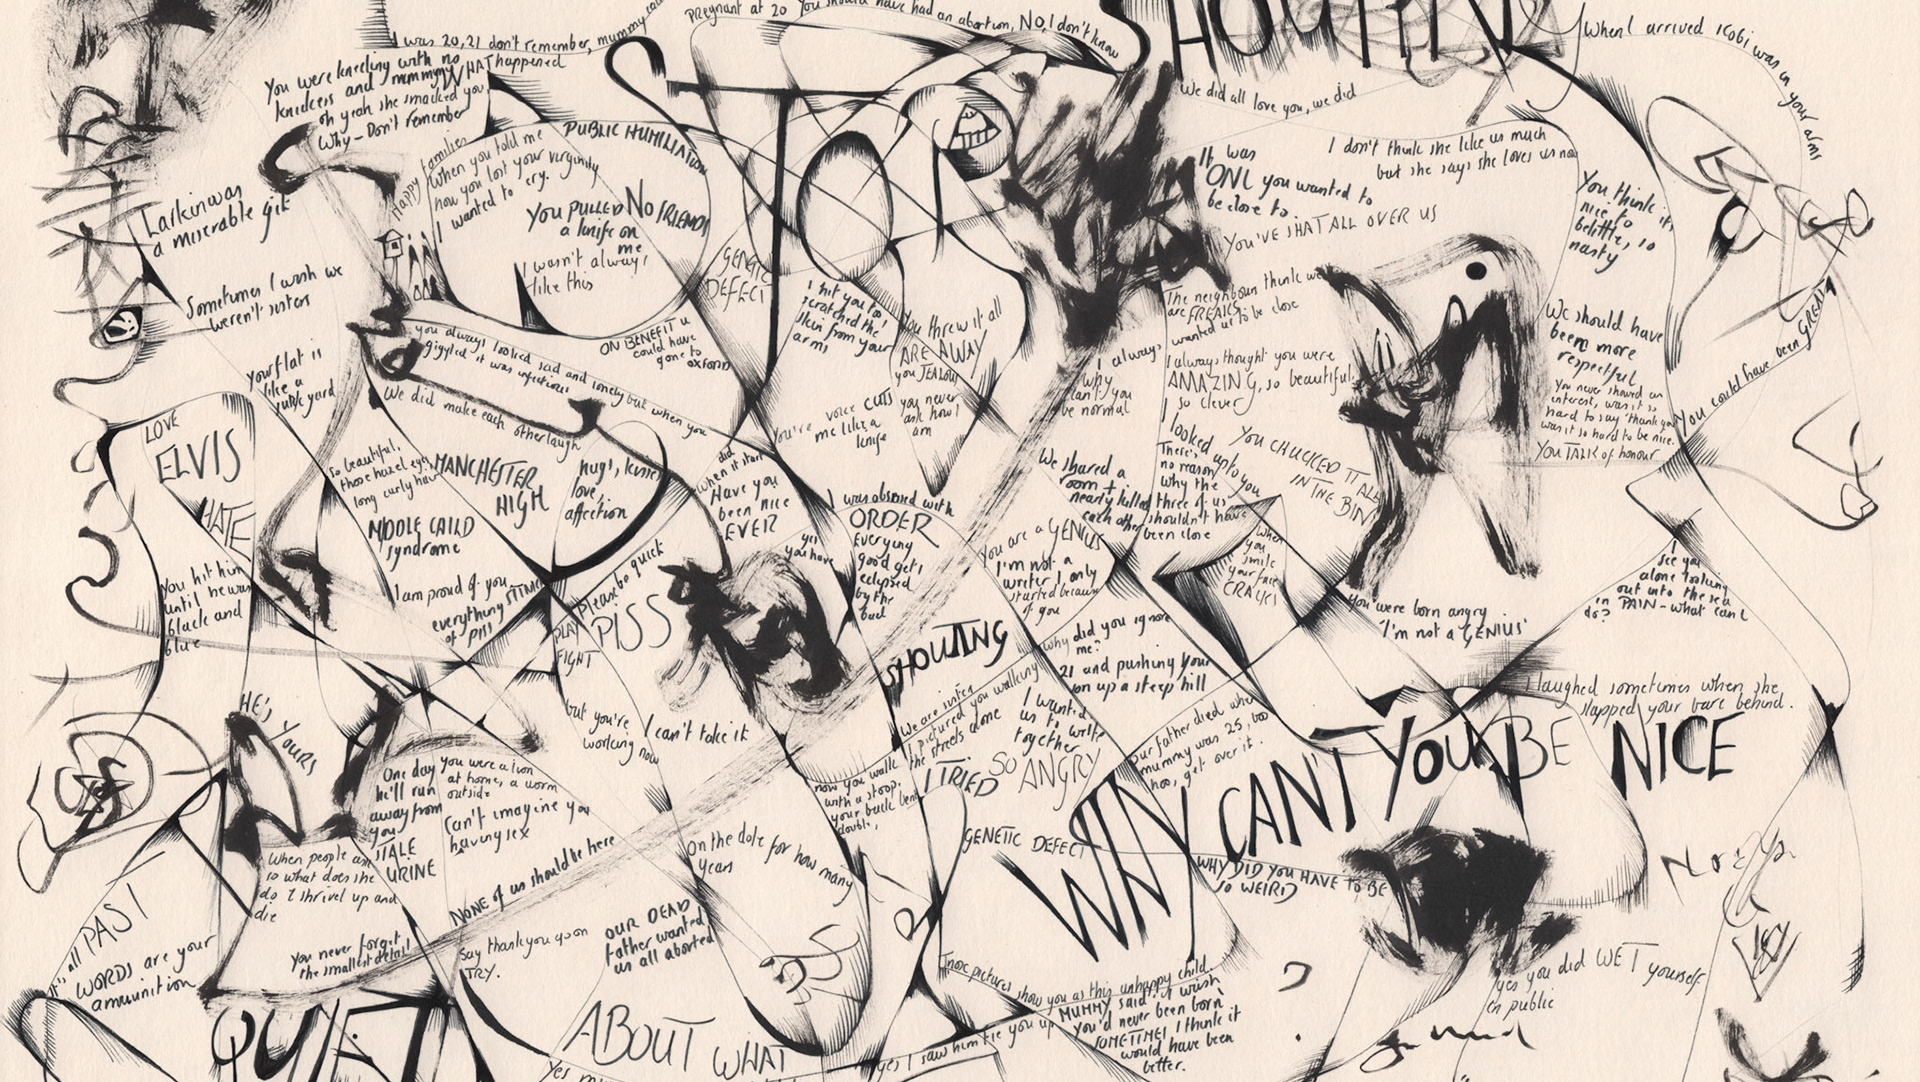 Pregnant at 20 You should have had an abortion, NO, I don't know
I was 20, 21 don't remember, mummy
SHOUTING
When I arrived
was in your arms
You were kneeling with no
knickers and mummy WHAT happened
oh yeah she smacked you
Why – Don't remember
We did all love you, we did
STOP
PUBLIC HUMILIATION
Happy families
When you told me
how you lost your virginity
I wanted to cry.
You PULLED
a knife on
me
No FRIENDS
I wasn't always
like this
I don't think she like us much
but she says she loves us now
It was
ONL you wanted to
be close to
YOU'VE SHAT ALL OVER US
You think it's
nice to
belittle, so
nasty
Larkin was
a miserable git
Sometimes I wish we
weren't sisters
GENETIC
DEFECT
I hit you too,
scratched the
skin from your
arms
You threw it all
ARE AWAY
you JEALOUS
you never
ask how I
am
The neighbours think we
are FREAKS
wanted us to be close
I always
why
can't you
be normal
I always thought you were
AMAZING, so beautiful,
so clever
We should have
been more
respectful
You never showed an
interest, was it so
hard to say 'thank you'
was it so hard to be nice.
YOU TALK of honour
You could have been GREAT
ON BENEFIT u
could have
gone to
oxford
you always looked sad and lonely but when you
giggled it was infectious
We did make each other laugh
Your flat is
like a
junk yard
LOVE
ELVIS
HATE
You hit him
until he was
black and
blue
So beautiful,
those hazel eyes
long curly hair
MANCHESTER
HIGH
hugs, kisses
love,
affection
MIDDLE CHILD
syndrome
You're
voice CUTS
me like a
knife
when did it start
Have you
been nice
EVER
yes
you have
I was obsessed with
ORDER
Everything
good gets
eclipsed
by the
bad
We shared a
room +
nearly killed
each other
I looked up to you
There's
no reason
why the
three of us
shouldn't have
been close
YOU CHUCKED IT ALL
IN THE BIN
when
you
smile
your face
CRACKS
You are a GENIUS
I'm not a
writer I only
started because
of you
I am proud of you
everything STINKS
of PISS
Please be quick
PISS
PLAY
FIGHT
SHOUTING
why did you ignore
me?
21 and pushing your
son up a steep hill
You were born angry
'I'm not a GENIUS'
I see you
alone looking
out into the sea
in PAIN – what can I
do?
I laughed sometimes when she
slapped your bare behind.
HE'S YOURS
but you're
working now
I can't take it
We are sisters
I pictured you walking
the streets alone
I wanted
us to write
together
I TRIED
SO ANGRY
Our father died when
mummy was 25, boo
hoo, get over it.
WHY CAN'T YOU BE NICE
now you walk
with a stoop,
your back bent
double,
One day
he'll run
away from
you
you were a lion
at home, a worm
outside
Can't imagine you
having sex
STALE
URINE
When people ask
so what does she
do I shrivel up and
die
None of us should be here
On the dole for how many
years
GENETIC DEFECT
WHY DID YOU HAVE TO BE
SO WEIRD
It's all PAST
WORDS are your
ammunition
You never forget
the smallest detail
Say thank you
TRY.
OUR DEAD
father wanted
us all aborted
QUIET
ABOUT WHAT
more pictures show you as this unhappy child.
MUMMY said 'I wish
you'd never been born'
SOMETIMES I think it
would have been
better.
yes I saw him tie you up
yes you did WET yourself
in public